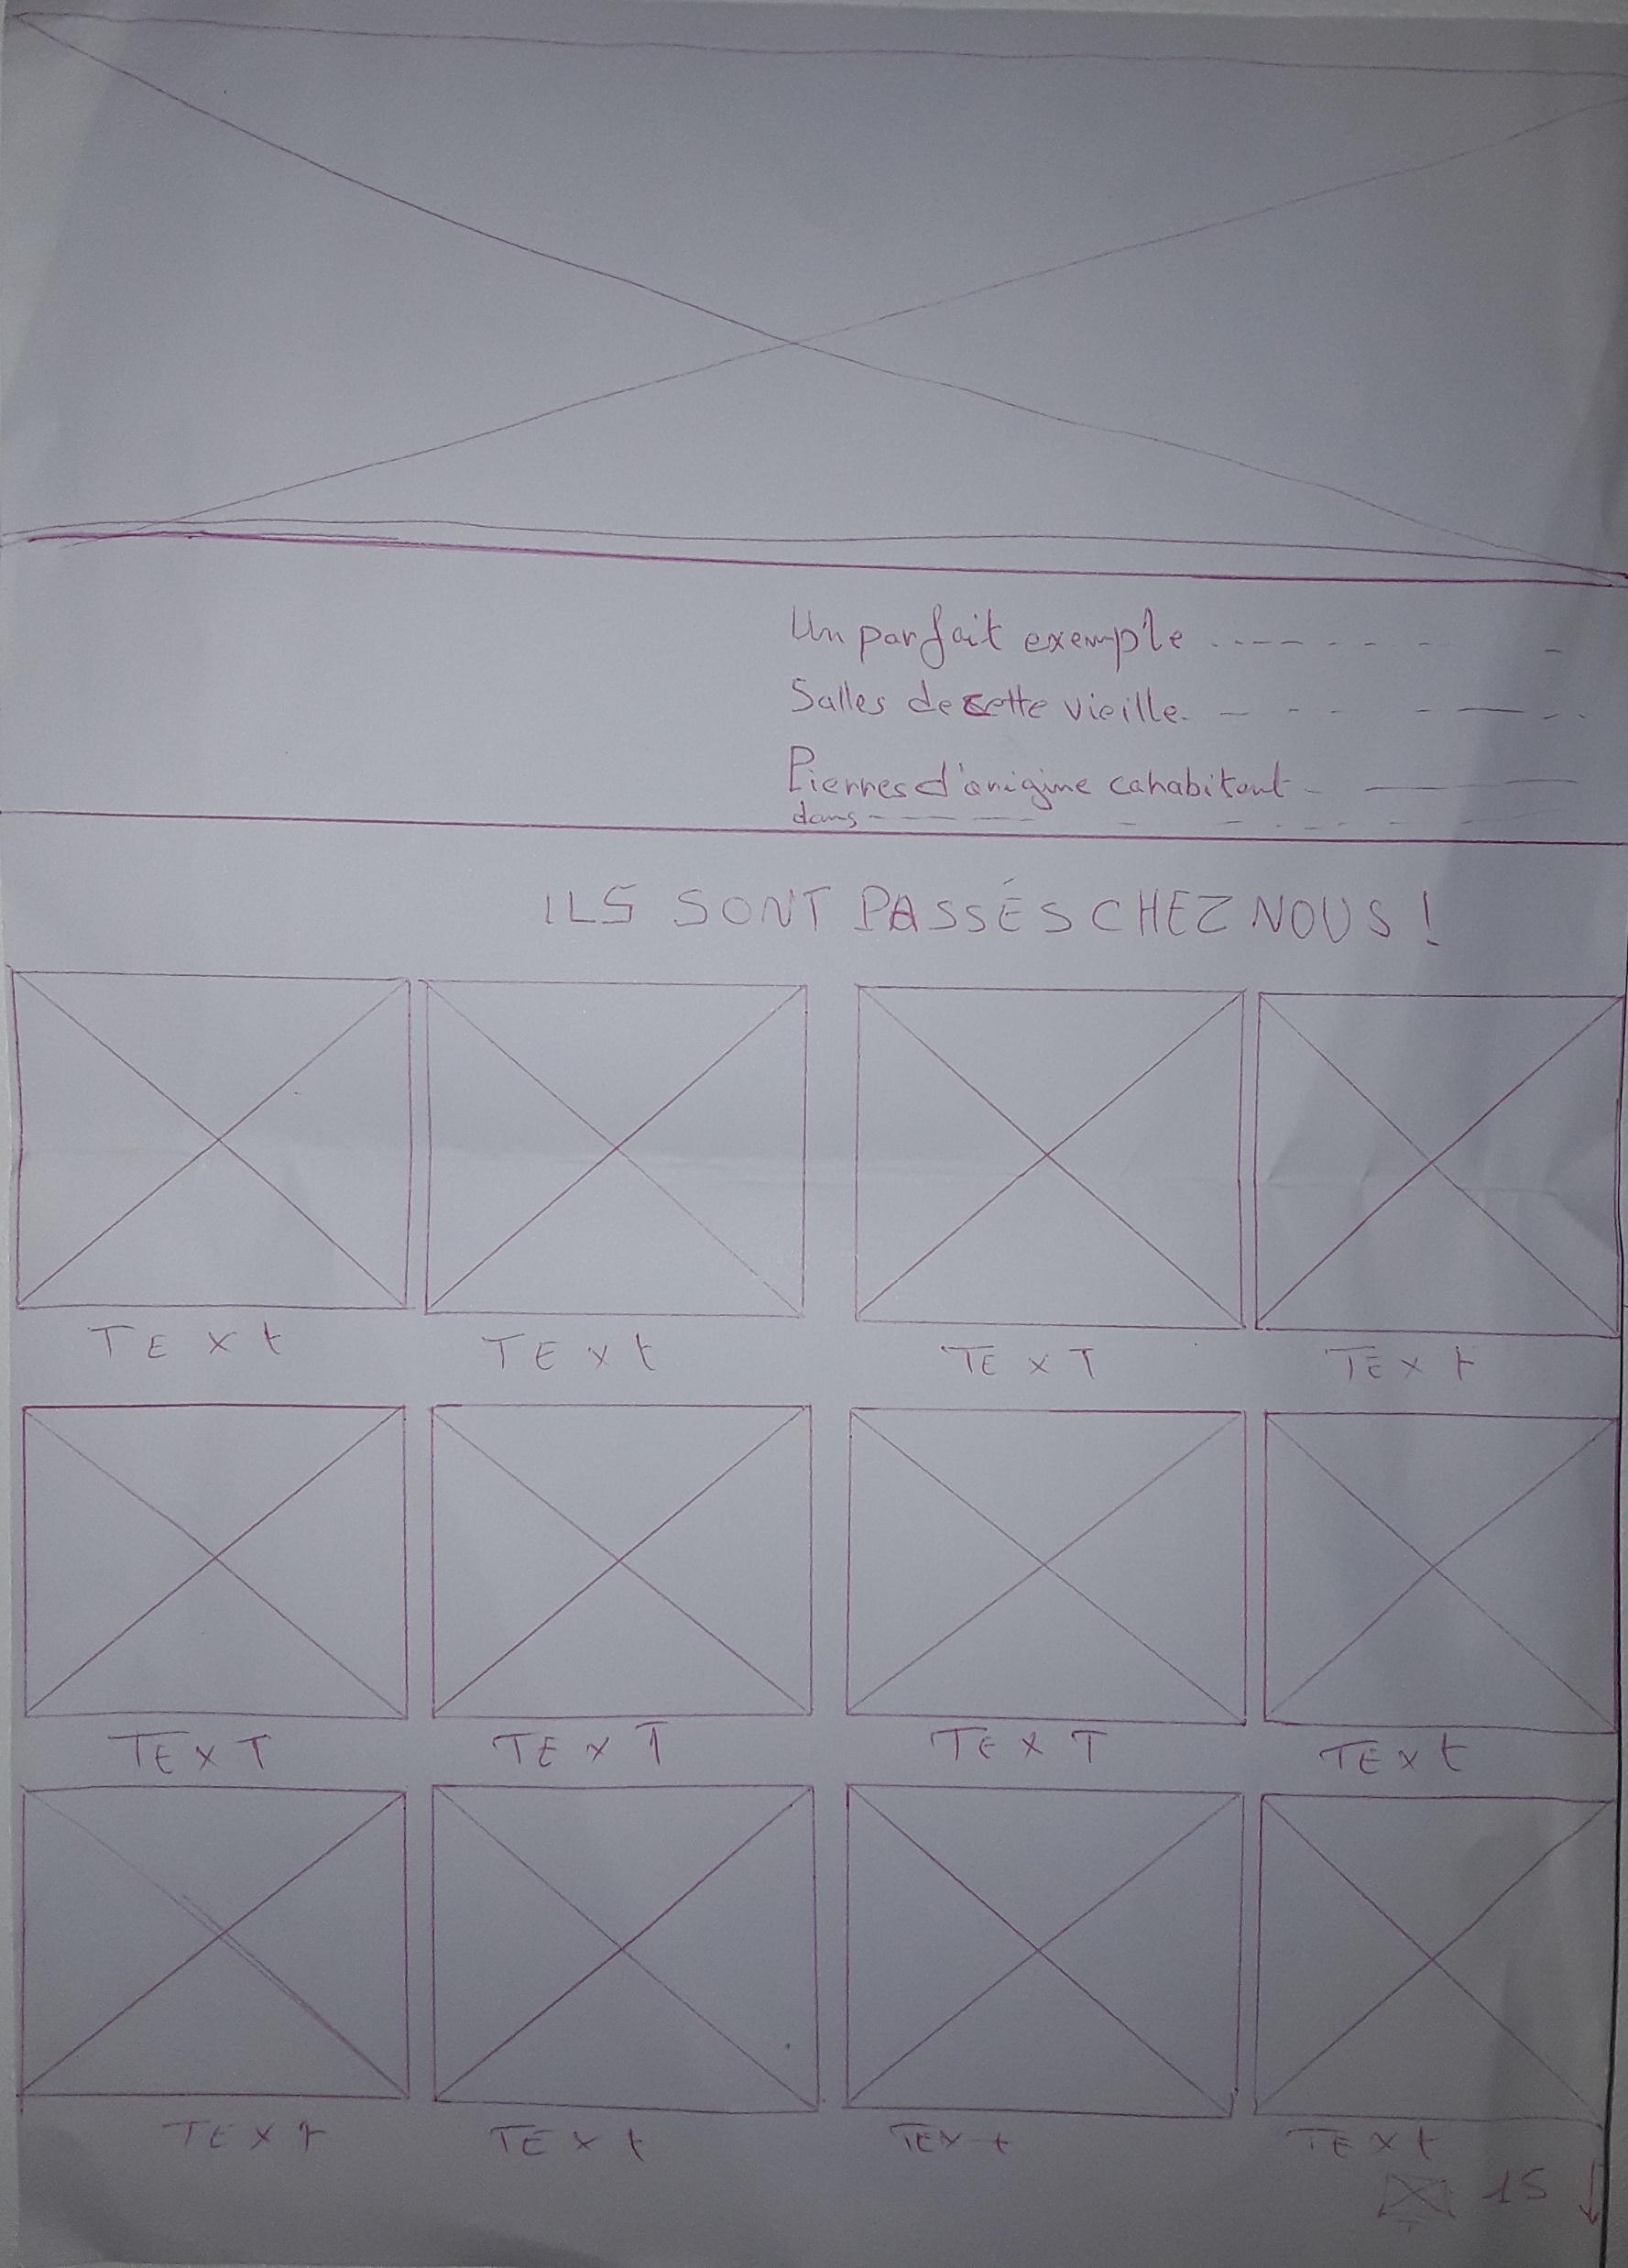 Un parfait exemple
Salles de cette vieille
Pierres d'origine cahabitent
dans
ILS SONT PASSÉS CHEZ NOUS !
TExt TExt TExT TExt
TExT TExT TExT TExt
TExt TExt TExt TExt
15